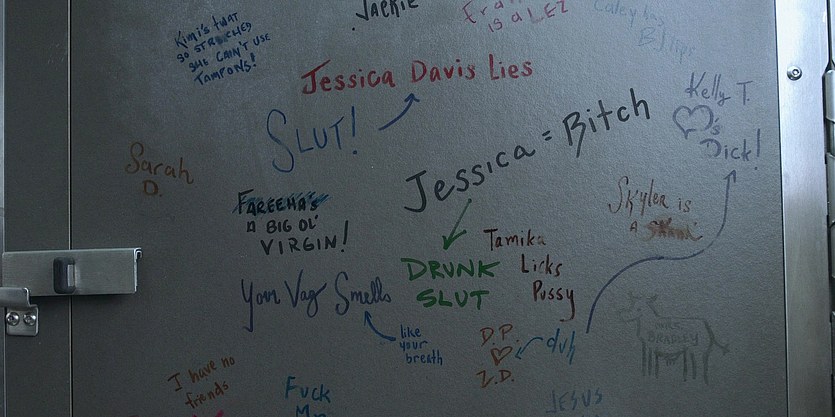 JACKIE
IS A LEZ
Kimi's TWAT
SO STRETCHED
SHE CAIN'T USE
TAMPONS!
Jessica Davis Lies
SLUT!
Kelly T.
's
Dick!
Jessica = Bitch
Sarah
D.
FAREEHA'S
A BIG OL'
VIRGIN!
Skyler is
A
Tamika
Licks
Pussy
DRUNK
SLUT
Your Vag Smells
like
your
breath
D.P.
Z.D.
duh
BRADLEY
I have no
friends
Fuck
JESUS